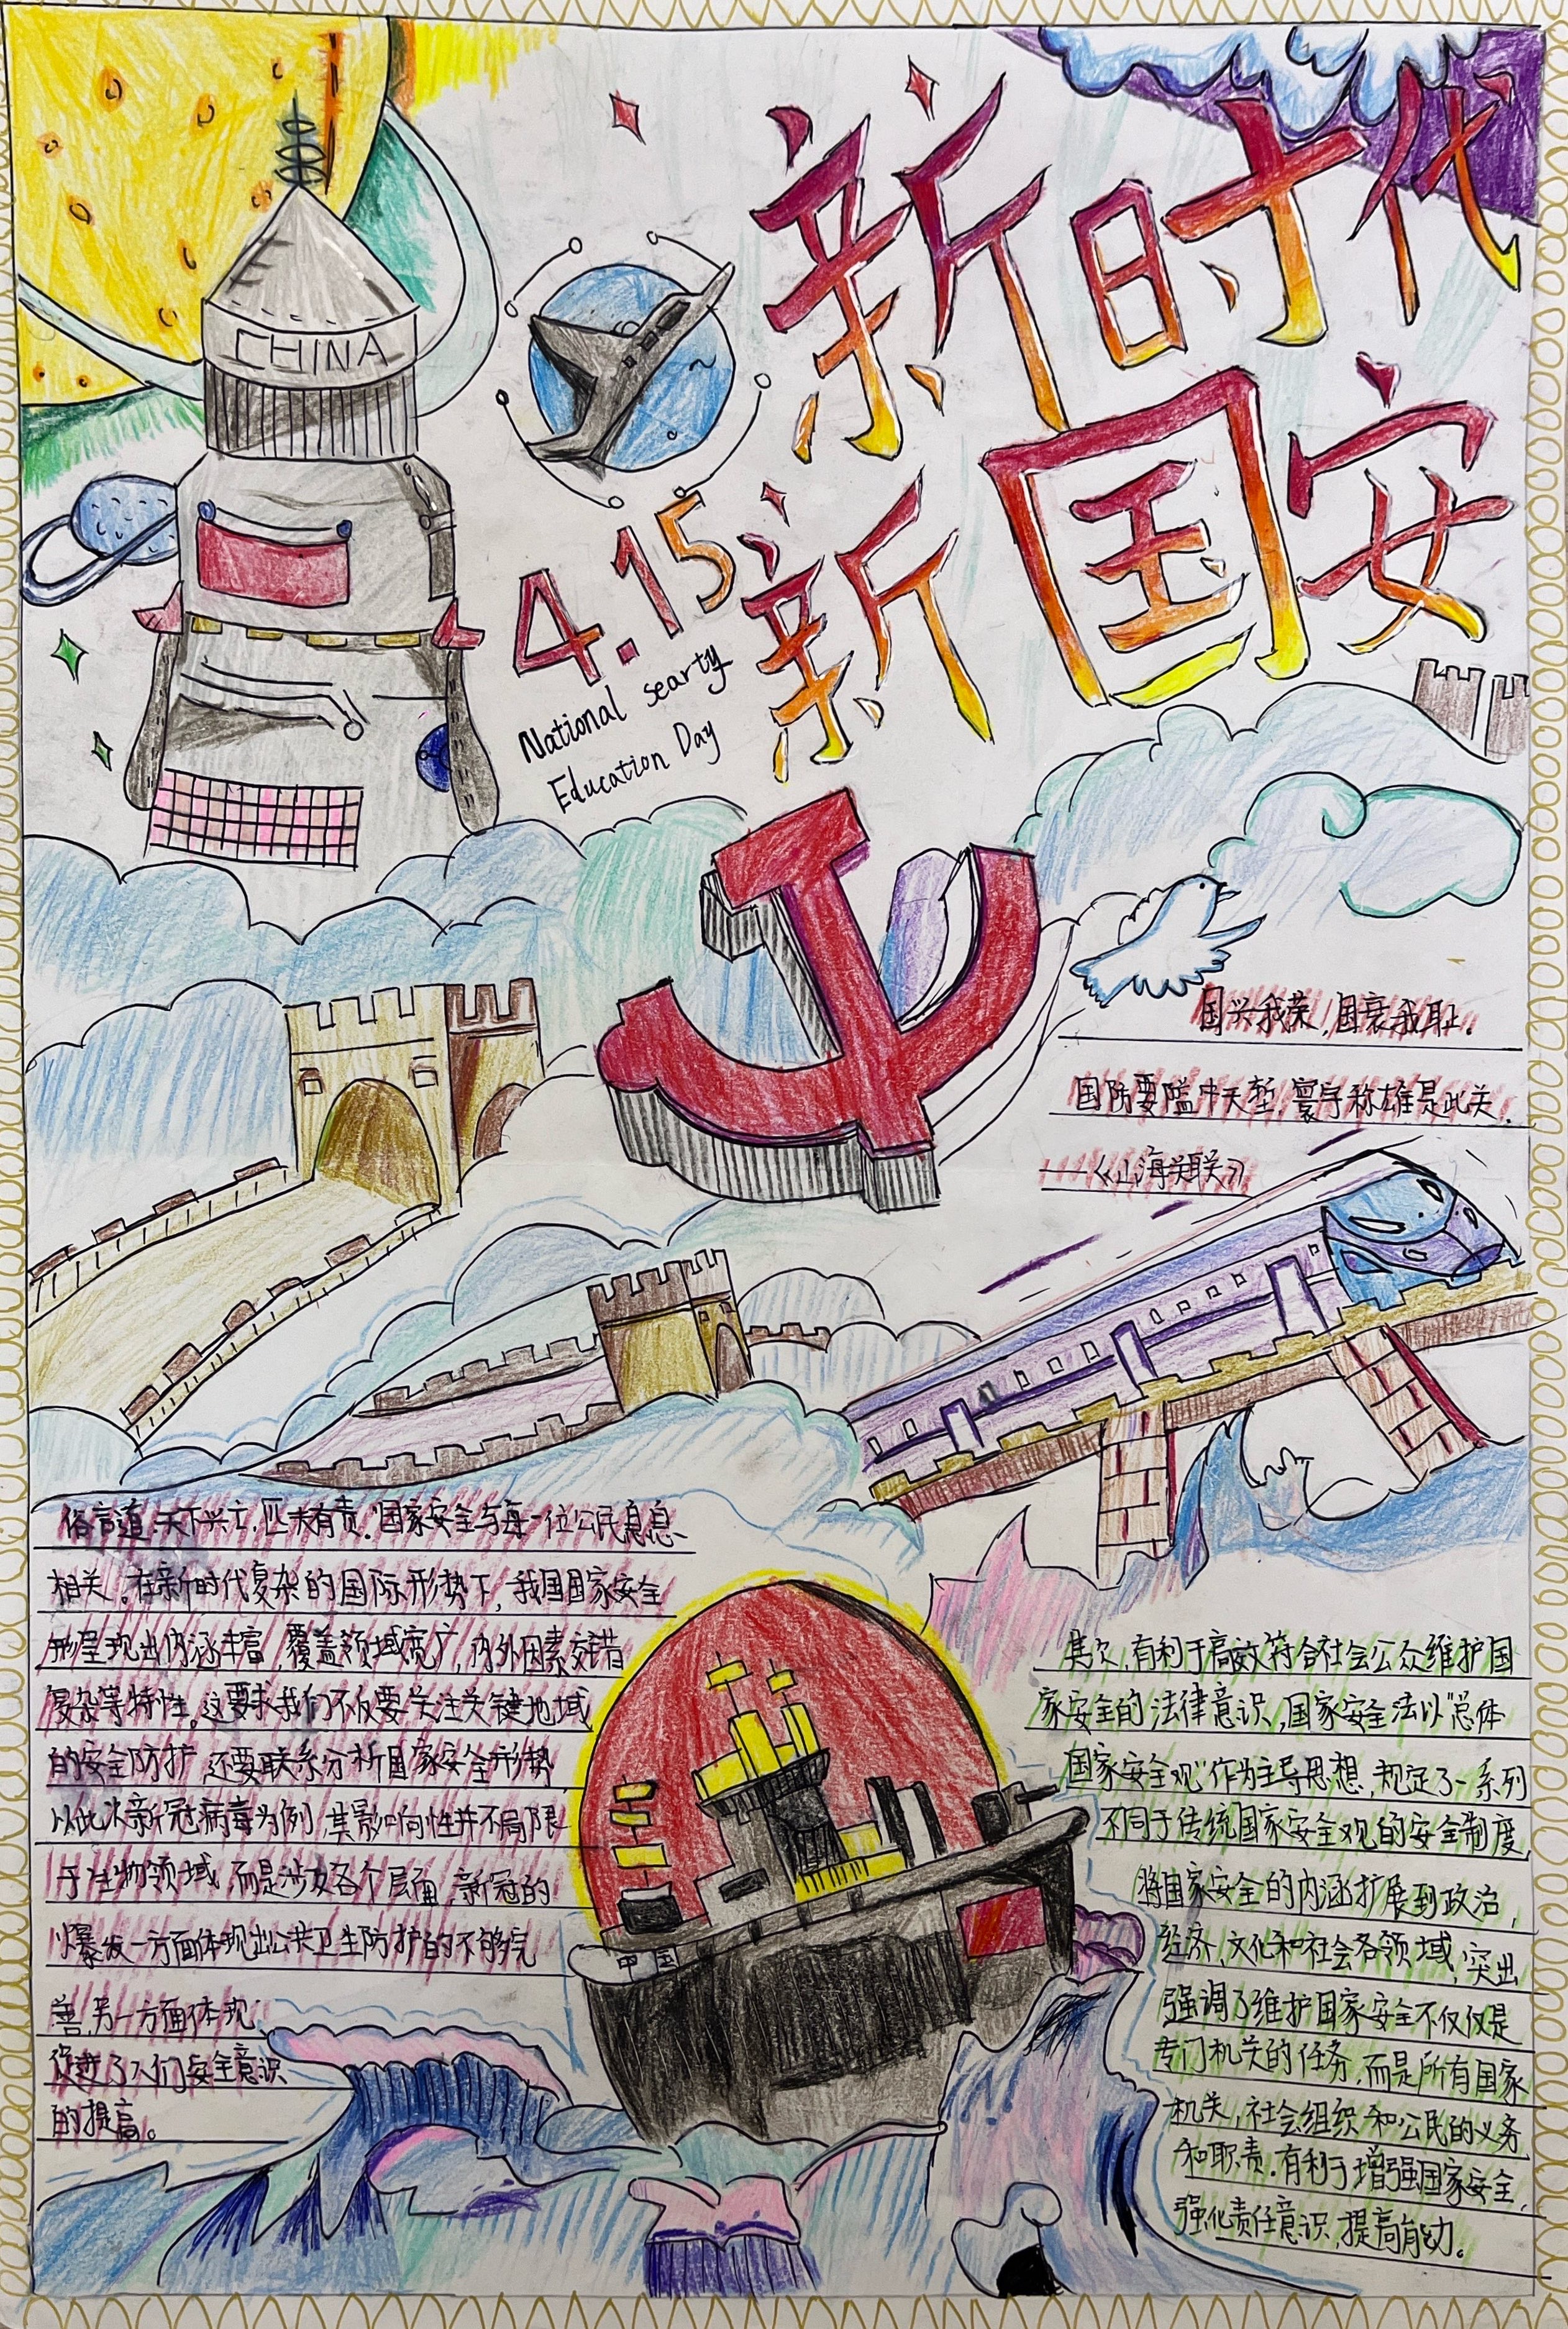 新时代
新国安
CHINA
4.15
National searty
Education Day
国兴我荣，国衰我耻。
国防要隘中天堑，寰宇称雄是此关。
——《山海关联》
俗言道，天下兴亡，匹夫有责。国家安全与每一位公民息息
相关。在新时代复杂的国际形势下，我国国家安全
形呈现出内涵丰富，覆盖领域宽广，内外因素交错
复杂等特性。这要求我们不仅要关注关键地域
的安全防护，还要联系分析国家安全形势，
以此次新冠病毒为例，其影响性并不局限
于生物领域，而是涉及各个层面，新冠的
爆发一方面体现出公共卫生防护的不够完
善，另一方面体现
促进了人们安全意识
的提高。
中国
其次，有利于高效符合社会公众维护国
家安全的法律意识，国家安全法以“总体
国家安全观”作为主导思想，规定了一系列
不同于传统国家安全观的安全制度，
将国家安全的内涵扩展到政治，
经济，文化和社会各领域，突出
强调了维护国家安全不仅仅是
专门机关的任务，而是所有国家
机关，社会组织和公民的义务
和职责。有利于增强国家安全，
强化责任意识，提高能力。